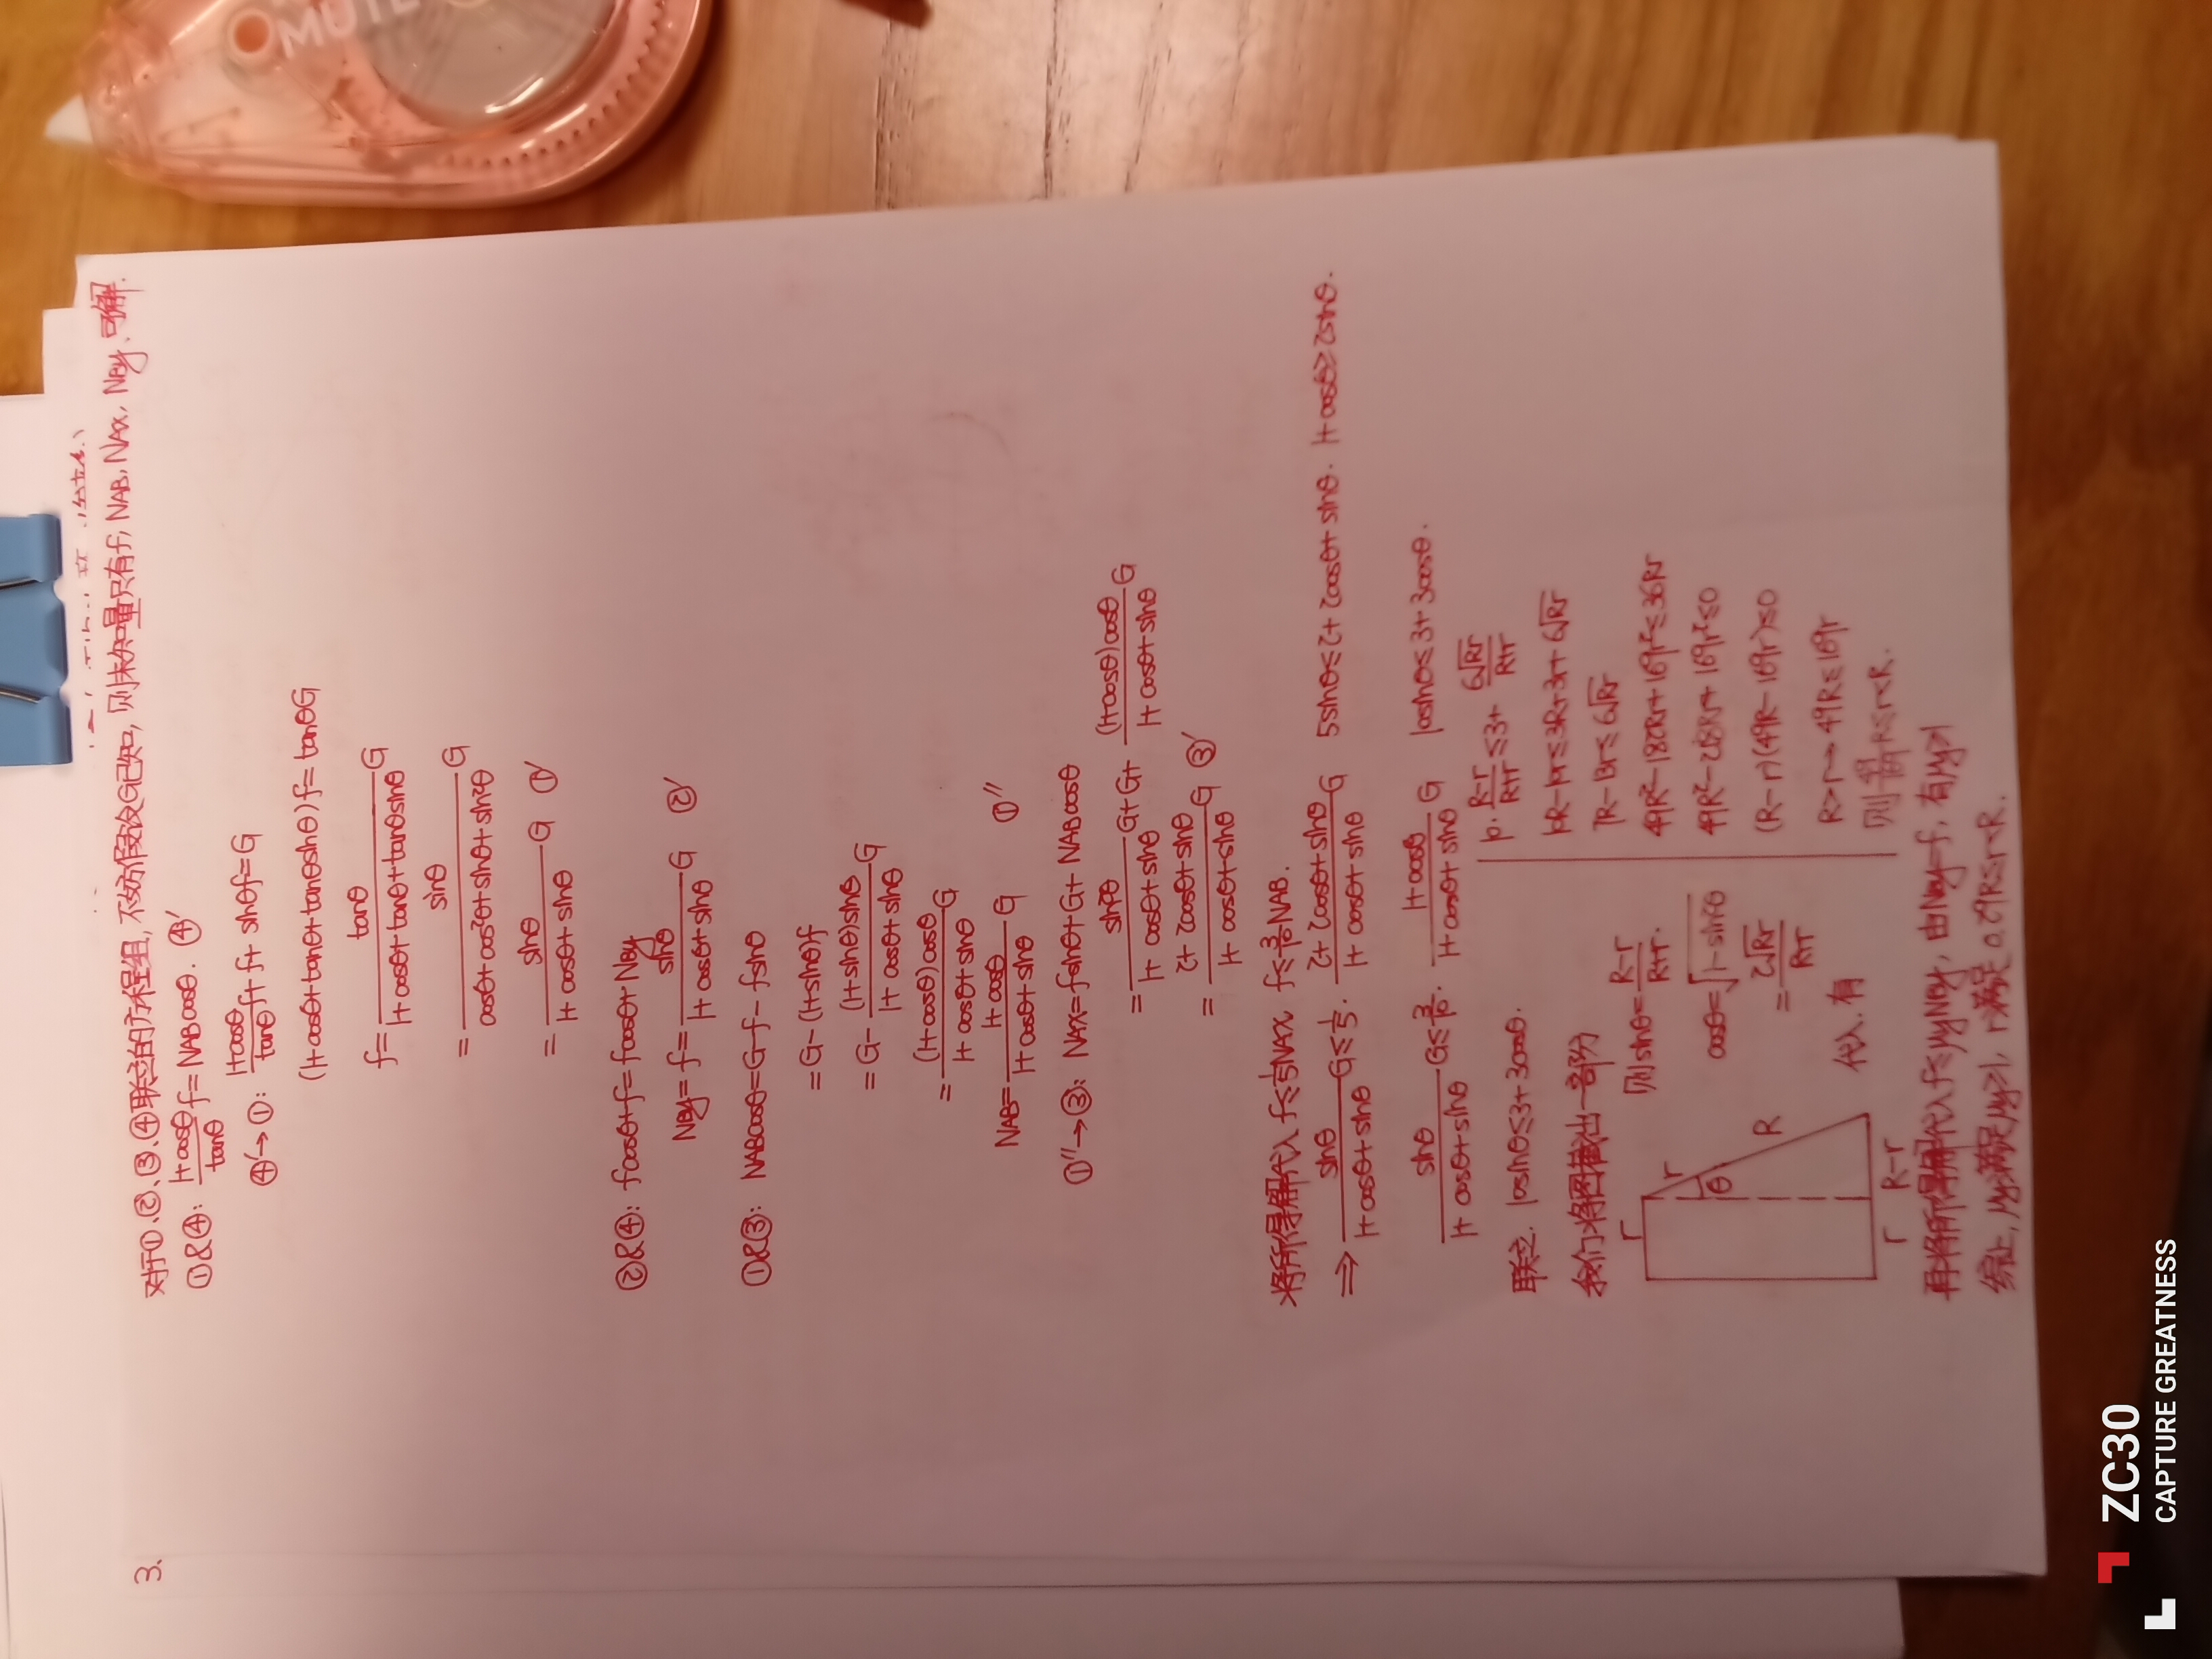 3.
对于①、②、③、④联立的方程组, 不妨假设G已知, 则未知量只有f, NAB, NAx, NBy, 可解.
①&④: (1+cosθ)/tanθ f = NABcosθ. ④'
④'→①: (1+cosθ)/tanθ f + f + sinθf = G
(1+cosθ+tanθ+tanθsinθ)f = tanθG
f = tanθ/(1+cosθ+tanθ+tanθsinθ) G
= sinθ/(cosθ+cos²θ+sinθ+sin²θ) G
= sinθ/(1+cosθ+sinθ) G ①'
②&④: fcosθ+f = fcosθ+NBy
NBy = f = sinθ/(1+cosθ+sinθ) G ②'
①&③: NABcosθ = G-f-fsinθ
= G-(1+sinθ)f
= G- (1+sinθ)sinθ/(1+cosθ+sinθ) G
= (1+cosθ)cosθ/(1+cosθ+sinθ) G
NAB = (1+cosθ)/(1+cosθ+sinθ) G ①''
①''→③: NAx = fsinθ+G+NABcosθ
= sin²θ/(1+cosθ+sinθ) G+G+ (1+cosθ)cosθ/(1+cosθ+sinθ) G
= (2+2cosθ+sinθ)/(1+cosθ+sinθ) G ③'
将所得解代入 f≤1/5NAx f≤3/10NAB.
⟹ sinθ/(1+cosθ+sinθ) G ≤ 1/5 · (2+2cosθ+sinθ)/(1+cosθ+sinθ) G 5sinθ≤2+2cosθ+sinθ. 1+cosθ≥2sinθ.
sinθ/(1+cosθ+sinθ) G ≤ 3/10 · (1+cosθ)/(1+cosθ+sinθ) G 10sinθ≤3+3cosθ.
联立. 10sinθ≤3+3cosθ.
我们将图截出一部份
r
r
θ
R
r
R-r
则 sinθ = (R-r)/(R+r).
cosθ = √(1-sin²θ)
= 2√(Rr)/(R+r)
代入. 有
10·(R-r)/(R+r) ≤ 3 + 6√(Rr)/(R+r)
10R-10r≤3R+3r+6√(Rr)
7R-13r≤6√(Rr)
49R²-182Rr+169r²≤36Rr
49R²-218Rr+169r²≤0
(R-r)(49R-169r)≤0
R>r → 49R≤169r
则 49/169R≤r<R.
再将所得解代入 f≤μyNBy, 由NBy=f, 有μy≥1
综上, μy满足μy≥1, r满足 0.29R≤r<R.
ZC30
CAPTURE GREATNESS